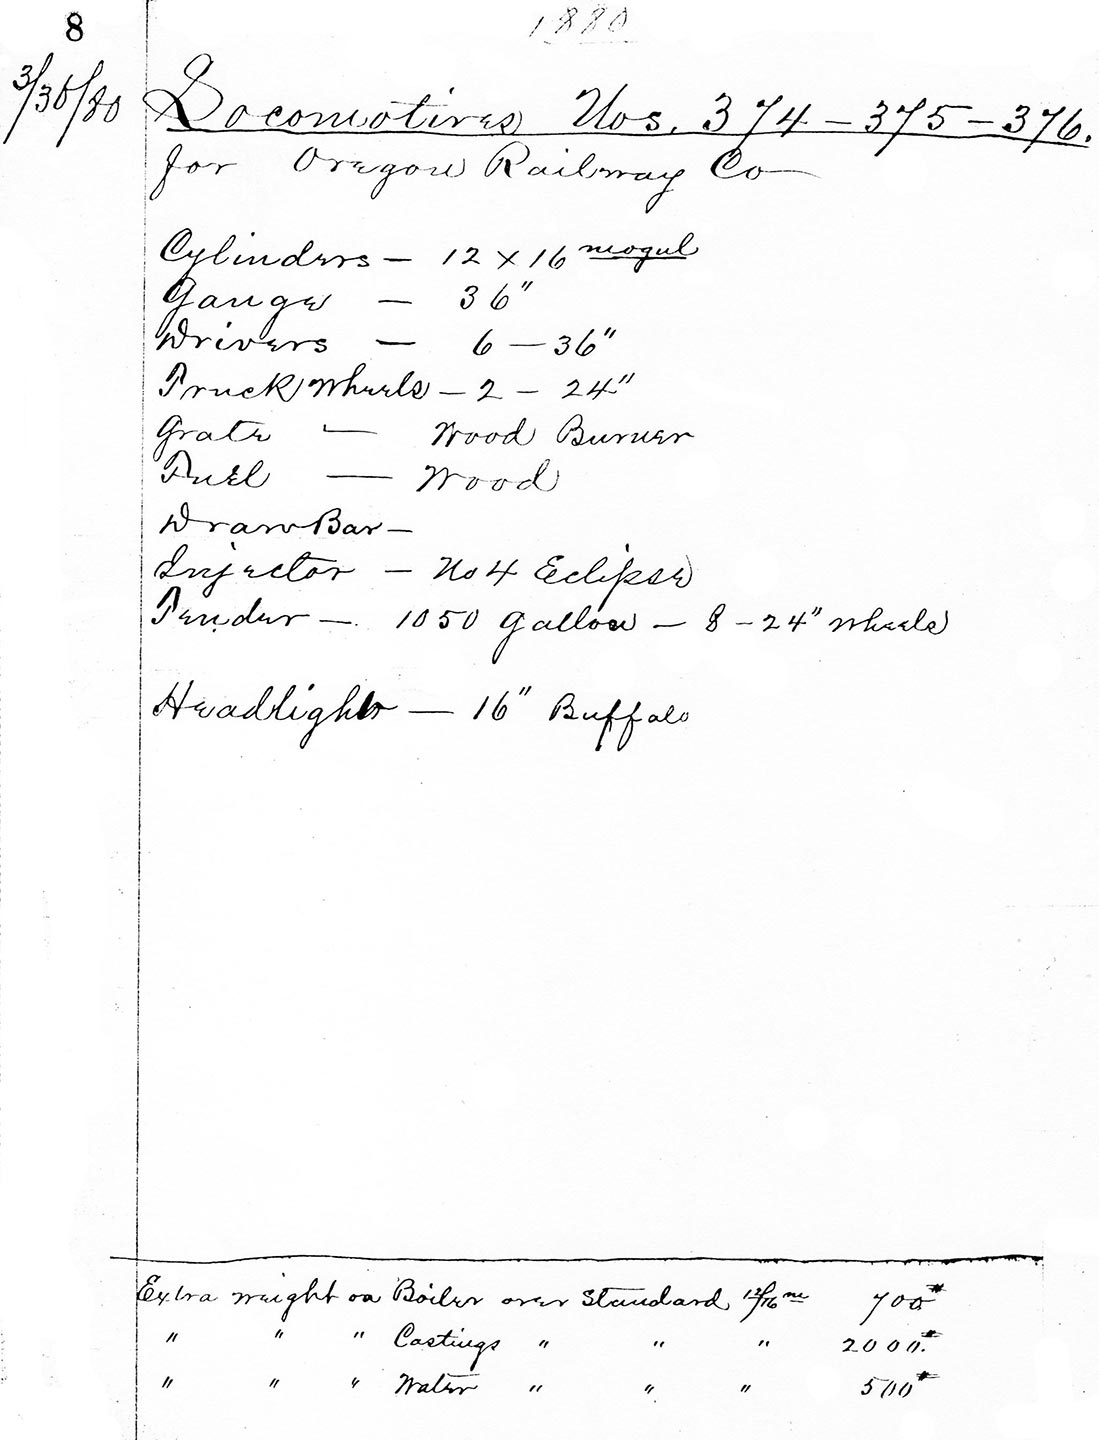 8
1880
3/30/80
Locomotives Nos. 374 – 375 – 376.
for Oregon Railway Co
Cylinders – 12 x 16 mogul
Gauge – 36"
Drivers – 6 – 36"
Truck Wheels – 2 – 24"
Grate – Wood Burner
Fuel – Wood
Draw Bar –
Injector – No 4 Eclipse
Tender – 1050 Gallon – 8 – 24" wheels
Headlight – 16" Buffalo
Extra weight on Boiler over Standard 12/16 700#
" " " Castings " " " 2000.#
" " " Water " " " 500#